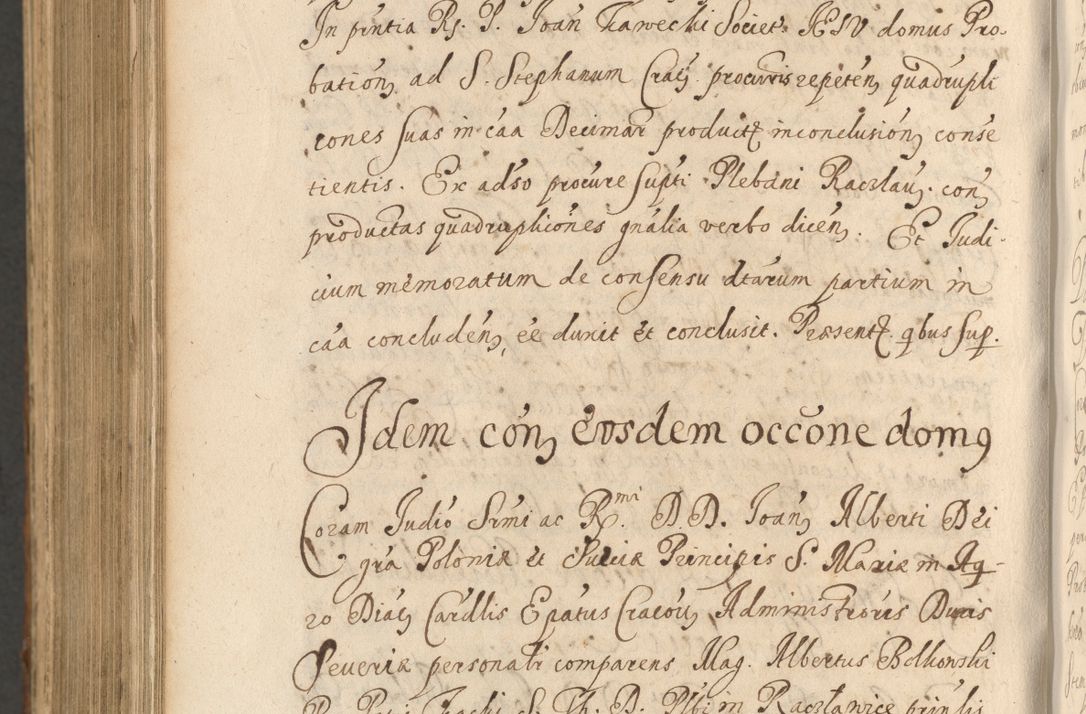 In pñtia Rs. P. Joan̄ Ławecki Societ: IESV domus Pro-
bation̄ ad S. Stephanum Crac̄. procuris repeten̄ quadrupli
cones suas in cãa Decimar̄ product̄ in conclusion̄ conse
tientis. Ex adso procure supti Plebani Raczlav̄. con̄
productas quadruplicões gnalia verbo dicen̄. Et Judi-
cium memoratum de consensu dtarum partium in
cãa concluden̄, eẽ duxit et conclusit. Præsent̄. qbus sup.
Idem con̄ eosdem occõne domg
Coram Judio Srmi ac R.mi D.D. Joan̄ Alberti Dei
gra Poloniæ et Sueciæ Principis S. Mariæ in Aq-
ro Diac̄ Cardlis Epatus Cracov̄ Administroris Ducis
Severiæ personalr comparens Mag. Albertus Bolkowski
in Raczlawice prinlis